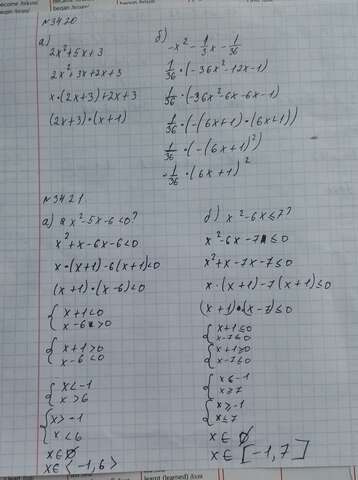 become /bɪˈkʌm/
began /bɪˈɡæn/
№3420
а)
2x²+5x+3
2x²+3x+2x+3
x•(2x+3)+2x+3
(2x+3)•(x+1)
б)
-x² - 1/3 x - 1/36
1/36 • (-36x²-12x-1)
1/36 • (-36x²-6x-6x-1)
1/36 • (-(6x+1)•(6x+1))
1/36 • (-(6x+1)²)
-1/36 • (6x+1)²
№3421
а) x²-5x-6<0?
x²+x-6x-6<0
x•(x+1)-6(x+1)<0
(x+1)•(x-6)<0
{ x+1<0
x-6>0
{ x+1>0
x-6<0
{ x<-1
x>6
{ x>-1
x<6
x∈∅
x∈<-1,6>
б) x²-6x≤7?
x²-6x-7≤0
x²+x-7x-7≤0
x•(x+1)-7(x+1)≤0
(x+1)•(x-7)≤0
{ x+1≤0
x-7≤0
{ x+1≥0
x-7≤0
{ x≤-1
x≥7
{ x≥-1
x≤7
x∈∅
x∈[-1,7]
learnt (learned)